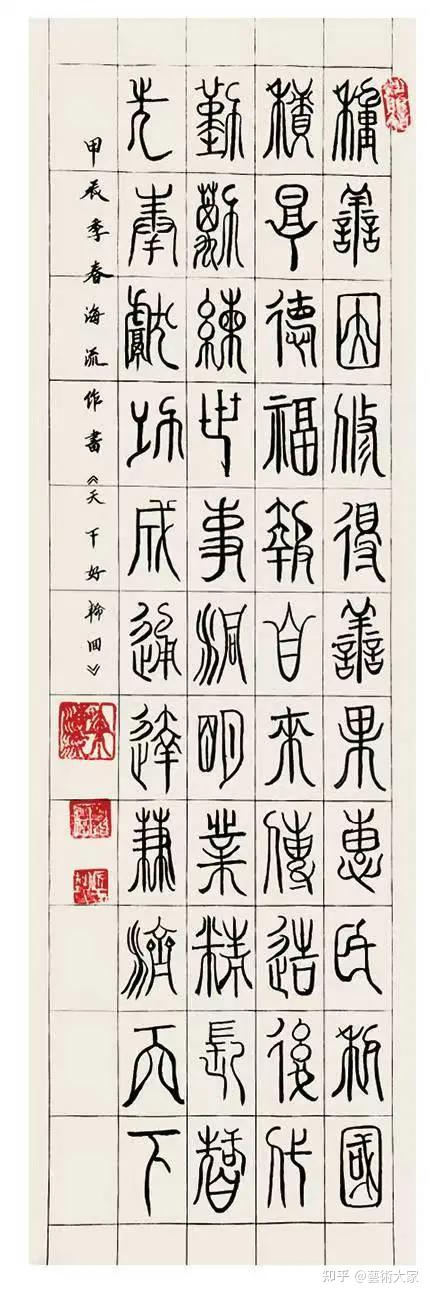 種善因修得善果惠民利國
積厚德福報自來傳造後代
勤勱練世事洞明業精長
先奉獻功成通達兼濟天下
甲辰季春海流作書《天下好輪回》
知乎 @藝術大家